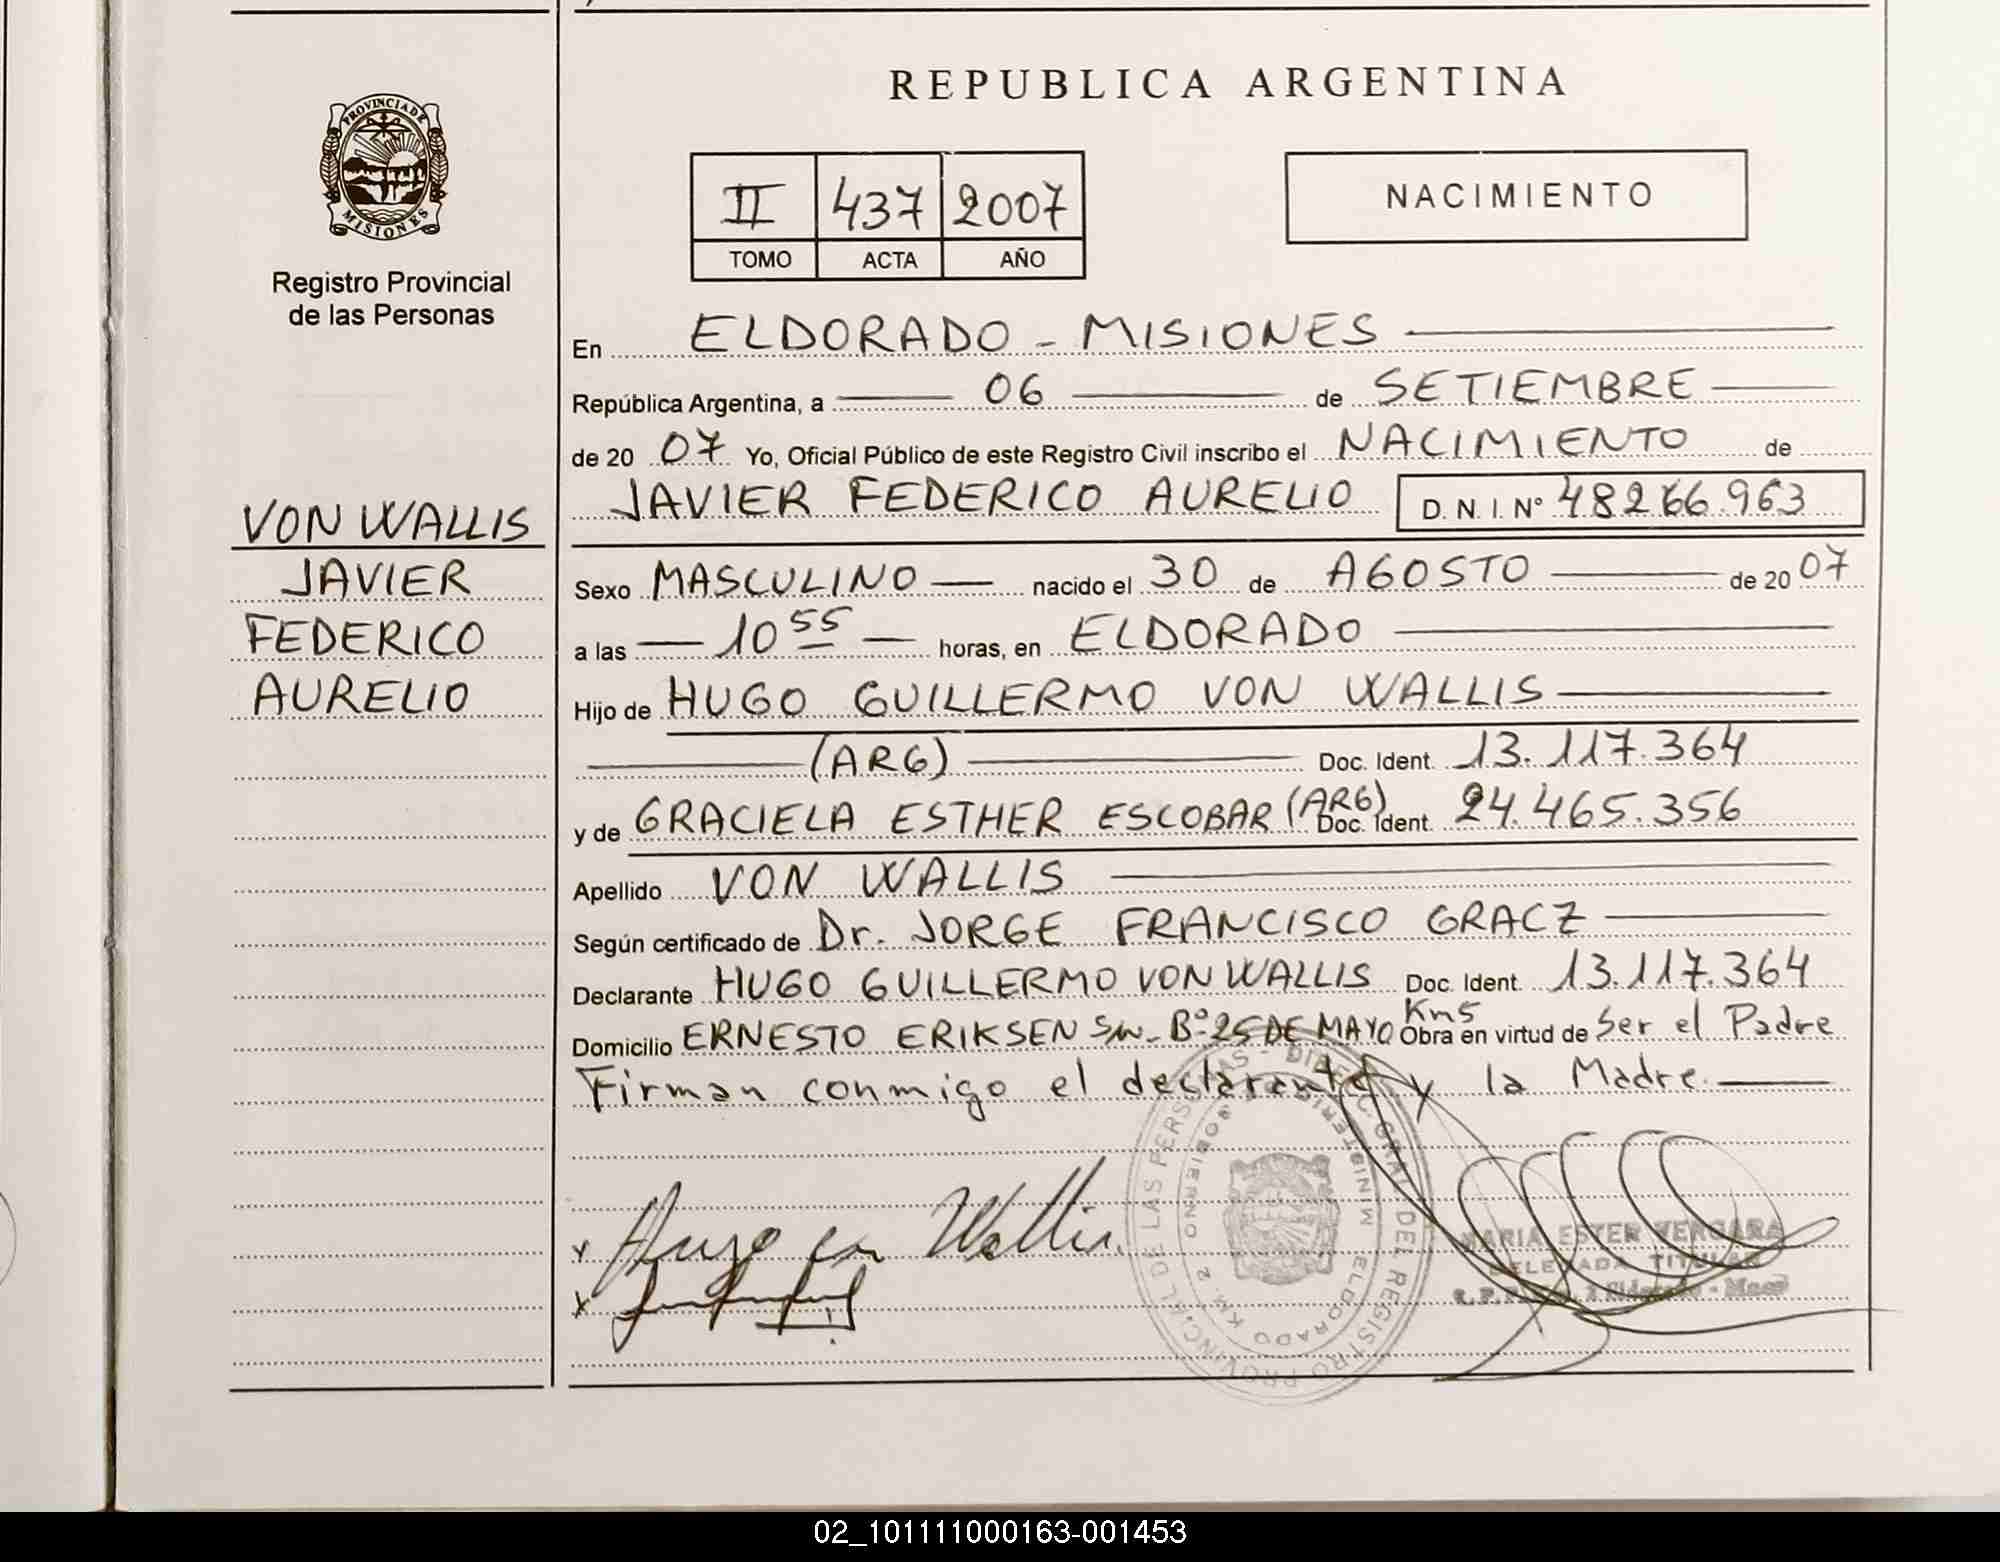 REPUBLICA ARGENTINA
PROVINCIA DE
MISIONES
Registro Provincial
de las Personas
II 437 2007
TOMO ACTA AÑO
NACIMIENTO
En ELDORADO - MISIONES
República Argentina, a 06 de SETIEMBRE
de 20 07 Yo, Oficial Público de este Registro Civil inscribo el NACIMIENTO de
JAVIER FEDERICO AURELIO D. N. I. Nº 48266.963
VON WALLIS
JAVIER
FEDERICO
AURELIO
Sexo MASCULINO nacido el 30 de AGOSTO de 20 07
a las 10 55 horas, en ELDORADO
Hijo de HUGO GUILLERMO VON WALLIS
(ARG) Doc. Ident. 13.117.364
y de GRACIELA ESTHER ESCOBAR (ARG) Doc. Ident. 24.465.356
Apellido VON WALLIS
Según certificado de Dr. JORGE FRANCISCO GRACZ
Declarante HUGO GUILLERMO VON WALLIS Doc. Ident. 13.117.364
Domicilio ERNESTO ERIKSEN S/N - Bº 25 DE MAYO Km5 Obra en virtud de Ser el Padre
Firman conmigo el declarante y la Madre.
x Hugo von Wallis
x
PROVINCIAL DE LAS PERSONAS - DIREC. GRAL. DEL REGISTRO
MINISTERIO GOBIERNO
ELDORADO KM. 2
MARIA ESTER VERGARA
DELEGADA TITULAR
02_101111000163-001453